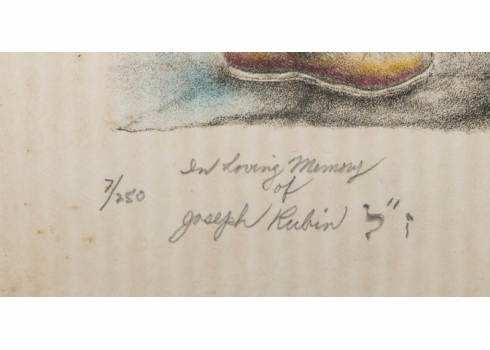 In Loving Memory
of
7/250
Joseph Rubin ז"ל